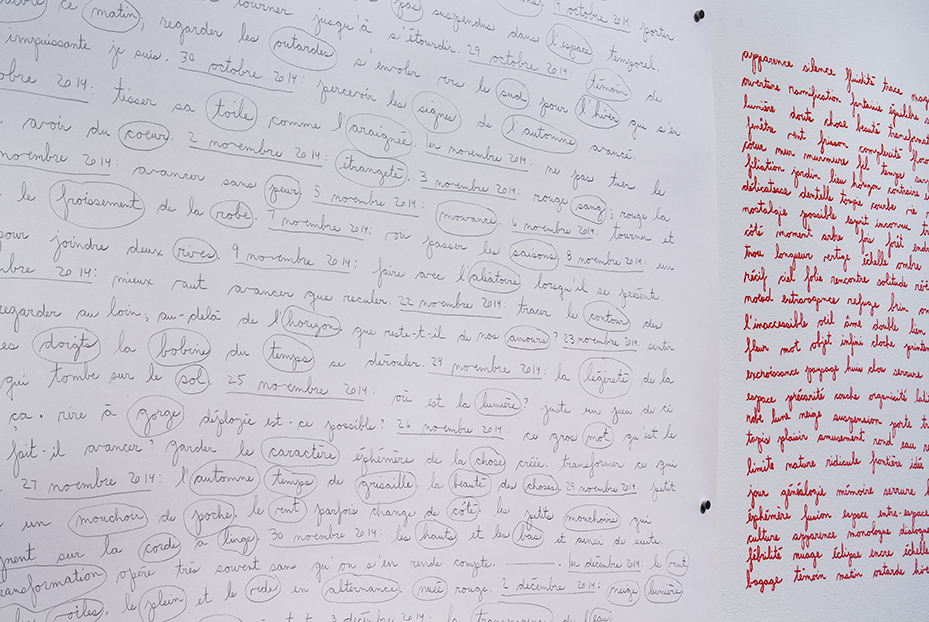 ce matin; regarder les tourner jusqu'à s'étourdir. pas suspendus dans l'espace temporel. 19 octobre 2014: porter
impuissante je suis. 30 octobre 2014: outardes s'envoler vers le sud 29 octobre 2014: témoin de
octobre 2014: tisser sa toile percevoir les signes de pour l'hiver qui s'en
avoir du coeur. 2 novembre 2014: comme l'araignée. 1er novembre 2014: l'automne avancé.
novembre 2014: avancer sans peur étrangeté. 3 novembre 2014: ne pas tuer le
le froissement de la robe. 5 novembre 2014: mouvance. rouge sang; rouge la
pour joindre deux rives. 7 novembre 2014: ou passer les saisons. 6 novembre 2014: tourner et
novembre 2014: 9 novembre 2014: faire avec l'aléatoire lorsqu'il se présente. 8 novembre 2014: un
mieux vaut avancer que reculer. 22 novembre 2014: tracer le contour des
regarder au loin; au-delà de l'horizon. que reste-t-il de nos amours? 23 novembre 2014: sentir
doigts la bobine du temps se dérouler. 24 novembre 2014: la légèreté de la
qui tombe sur le sol. 25 novembre 2014: où est la lumière? juste un peu de ci
ça. rire à gorge déployée est-ce possible? 26 novembre 2014: ce gros mot qu'est le
fait-il avancer? garder le caractère éphémère de la chose créée. transformer ce qui
27 novembre 2014: l'automne temps de grisaille. la beauté des choses. 29 novembre 2014: petit
un mouchoir de poche. le vent parfois change de côté. les petits mouchoirs qui
sur la corde à linge. 30 novembre 2014: les hauts et les bas et ainsi de suite.
transformation opère très souvent sans qu'on s'en rende compte. 1er décembre 2014: le vent
voiles. le plein et le vide en alternance. nuée rouge. 2 décembre 2014: neige lumière
3 décembre 2014: la transparence de l'eau
apparence silence fluidité trace
ouverture ramification fantaisie équilibre
lumière doute chose beauté
fenêtre vent frisson complexité
coeur mur murmure fil temps
filiation jardin lieu horizon contraire
délicatesse dentelle courbe vie
nostalgie possible esprit inconnu
côté moment arbre forêt
trou longueur vertige échelle ombre
récif ciel folie rencontre solitude
noeud extravagance refuge brin
l'inaccessible oeil âme double lien
fleur mot objet infini cloche
excroissance paysage huis clos serrure
espace précarité couche organicité
robe lune neige suspension porte
tapis plaisir amusement rond eau
limite nature ridicule frontière idée
jour généalogie mémoire serrure
éphémère fusion espace entre-espace
culture apparence monologue dialogue
fébrilité nuage éclipse encre échelle
bagage témoin matin outarde hiver